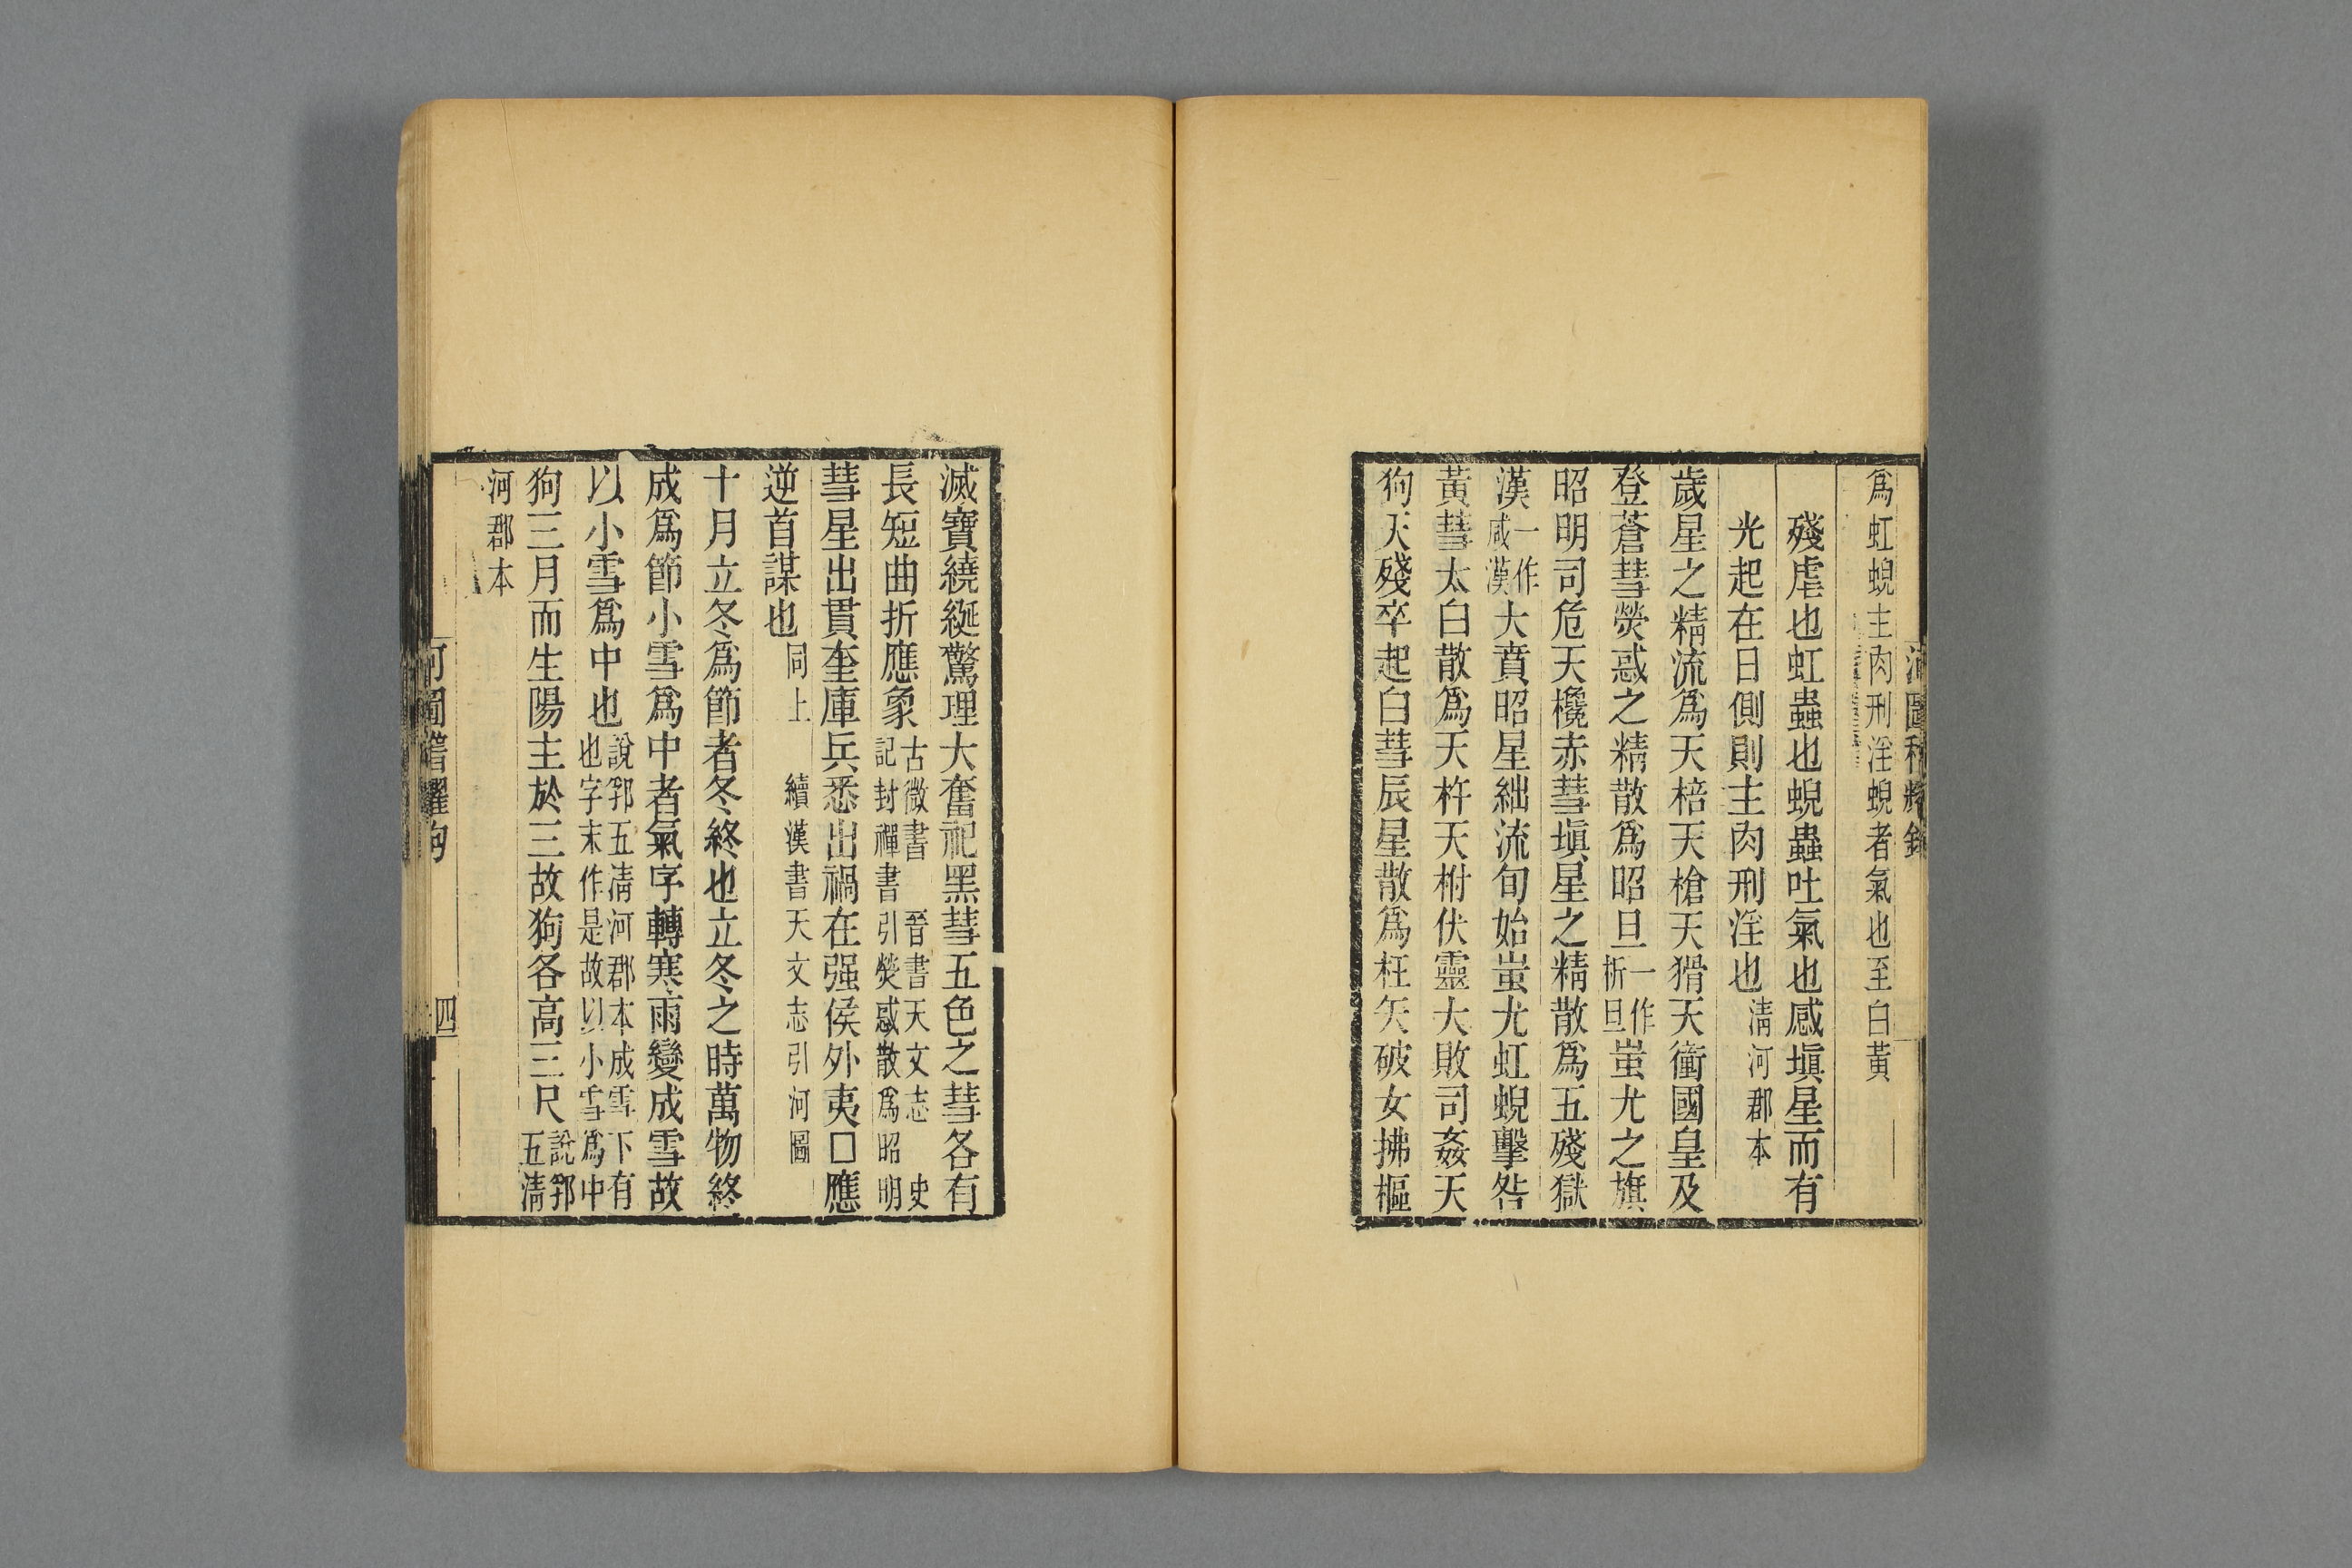 爲虹蜺主肉刑淫蜺者氣也至白黃
殘虐也虹蟲也蜺蟲吐氣也感塡星而有
光起在日側則主肉刑淫也淸河郡本
歲星之精流爲天棓天槍天猾天衝國皇及
登蒼彗熒惑之精散爲昭旦一作析旦蚩尤之旗
昭明司危天欃赤彗塡星之精散爲五殘獄
漢一作咸漢大賁昭星絀流旬始蚩尤虹蜺擊咎
黃彗太白散爲天杵天柎伏靈大敗司姦天
狗天殘卒起白彗辰星散爲枉矢破女拂樞
滅寶繞綖驚理大奮祀黑彗五色之彗各有
長短曲折應象古微書 晉書天文志 史記封禪書引熒惑散爲昭明
彗星出貫奎庫兵悉出禍在强侯外夷□應
逆首謀也同上 續漢書天文志引河圖
十月立冬爲節者冬終也立冬之時萬物終
成爲節小雪爲中者氣字轉寒雨變成雪故
以小雪爲中也說郛五淸河郡本成雪下有也字末作是故以小雪爲中
狗三月而生陽主於三故狗各高三尺說郛五淸
河郡本
四